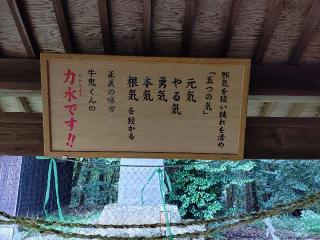 邪気を祓い穢れを清め
「五つの気」
元気
やる気
勇気
本気
根気 を授かる
正義の味方
牛鬼くんの
力水です!!